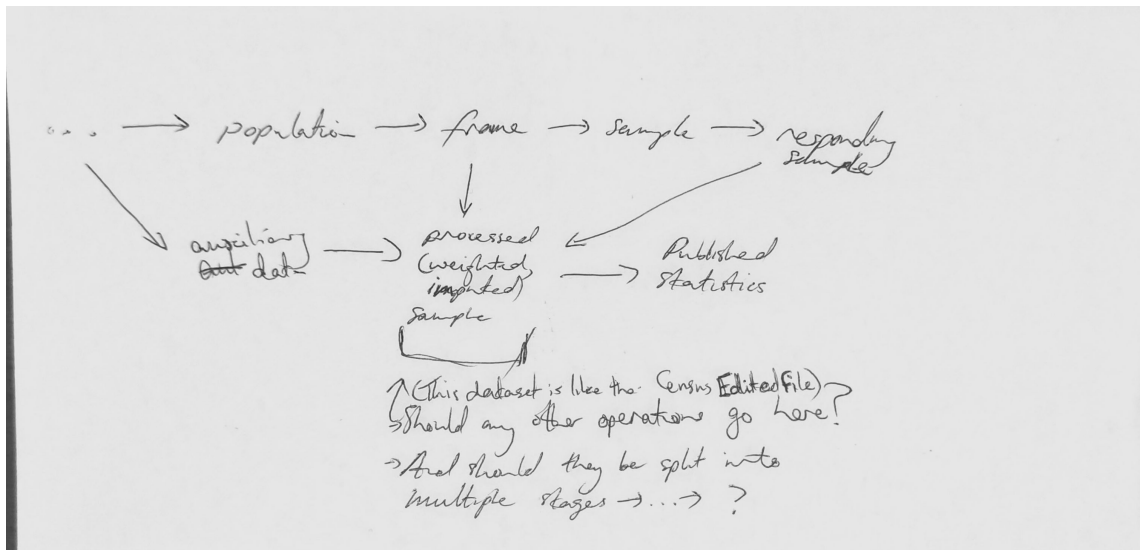 .... → population → frame → sample → responding
sample
auxiliary
data
→ processed
(weighted,
imputed)
sample
→ Published
statistics
↑ (This dataset is like the Census Edited File)
↳ Should any other operations go here?
→ And should they be split into
multiple stages → ... → ?